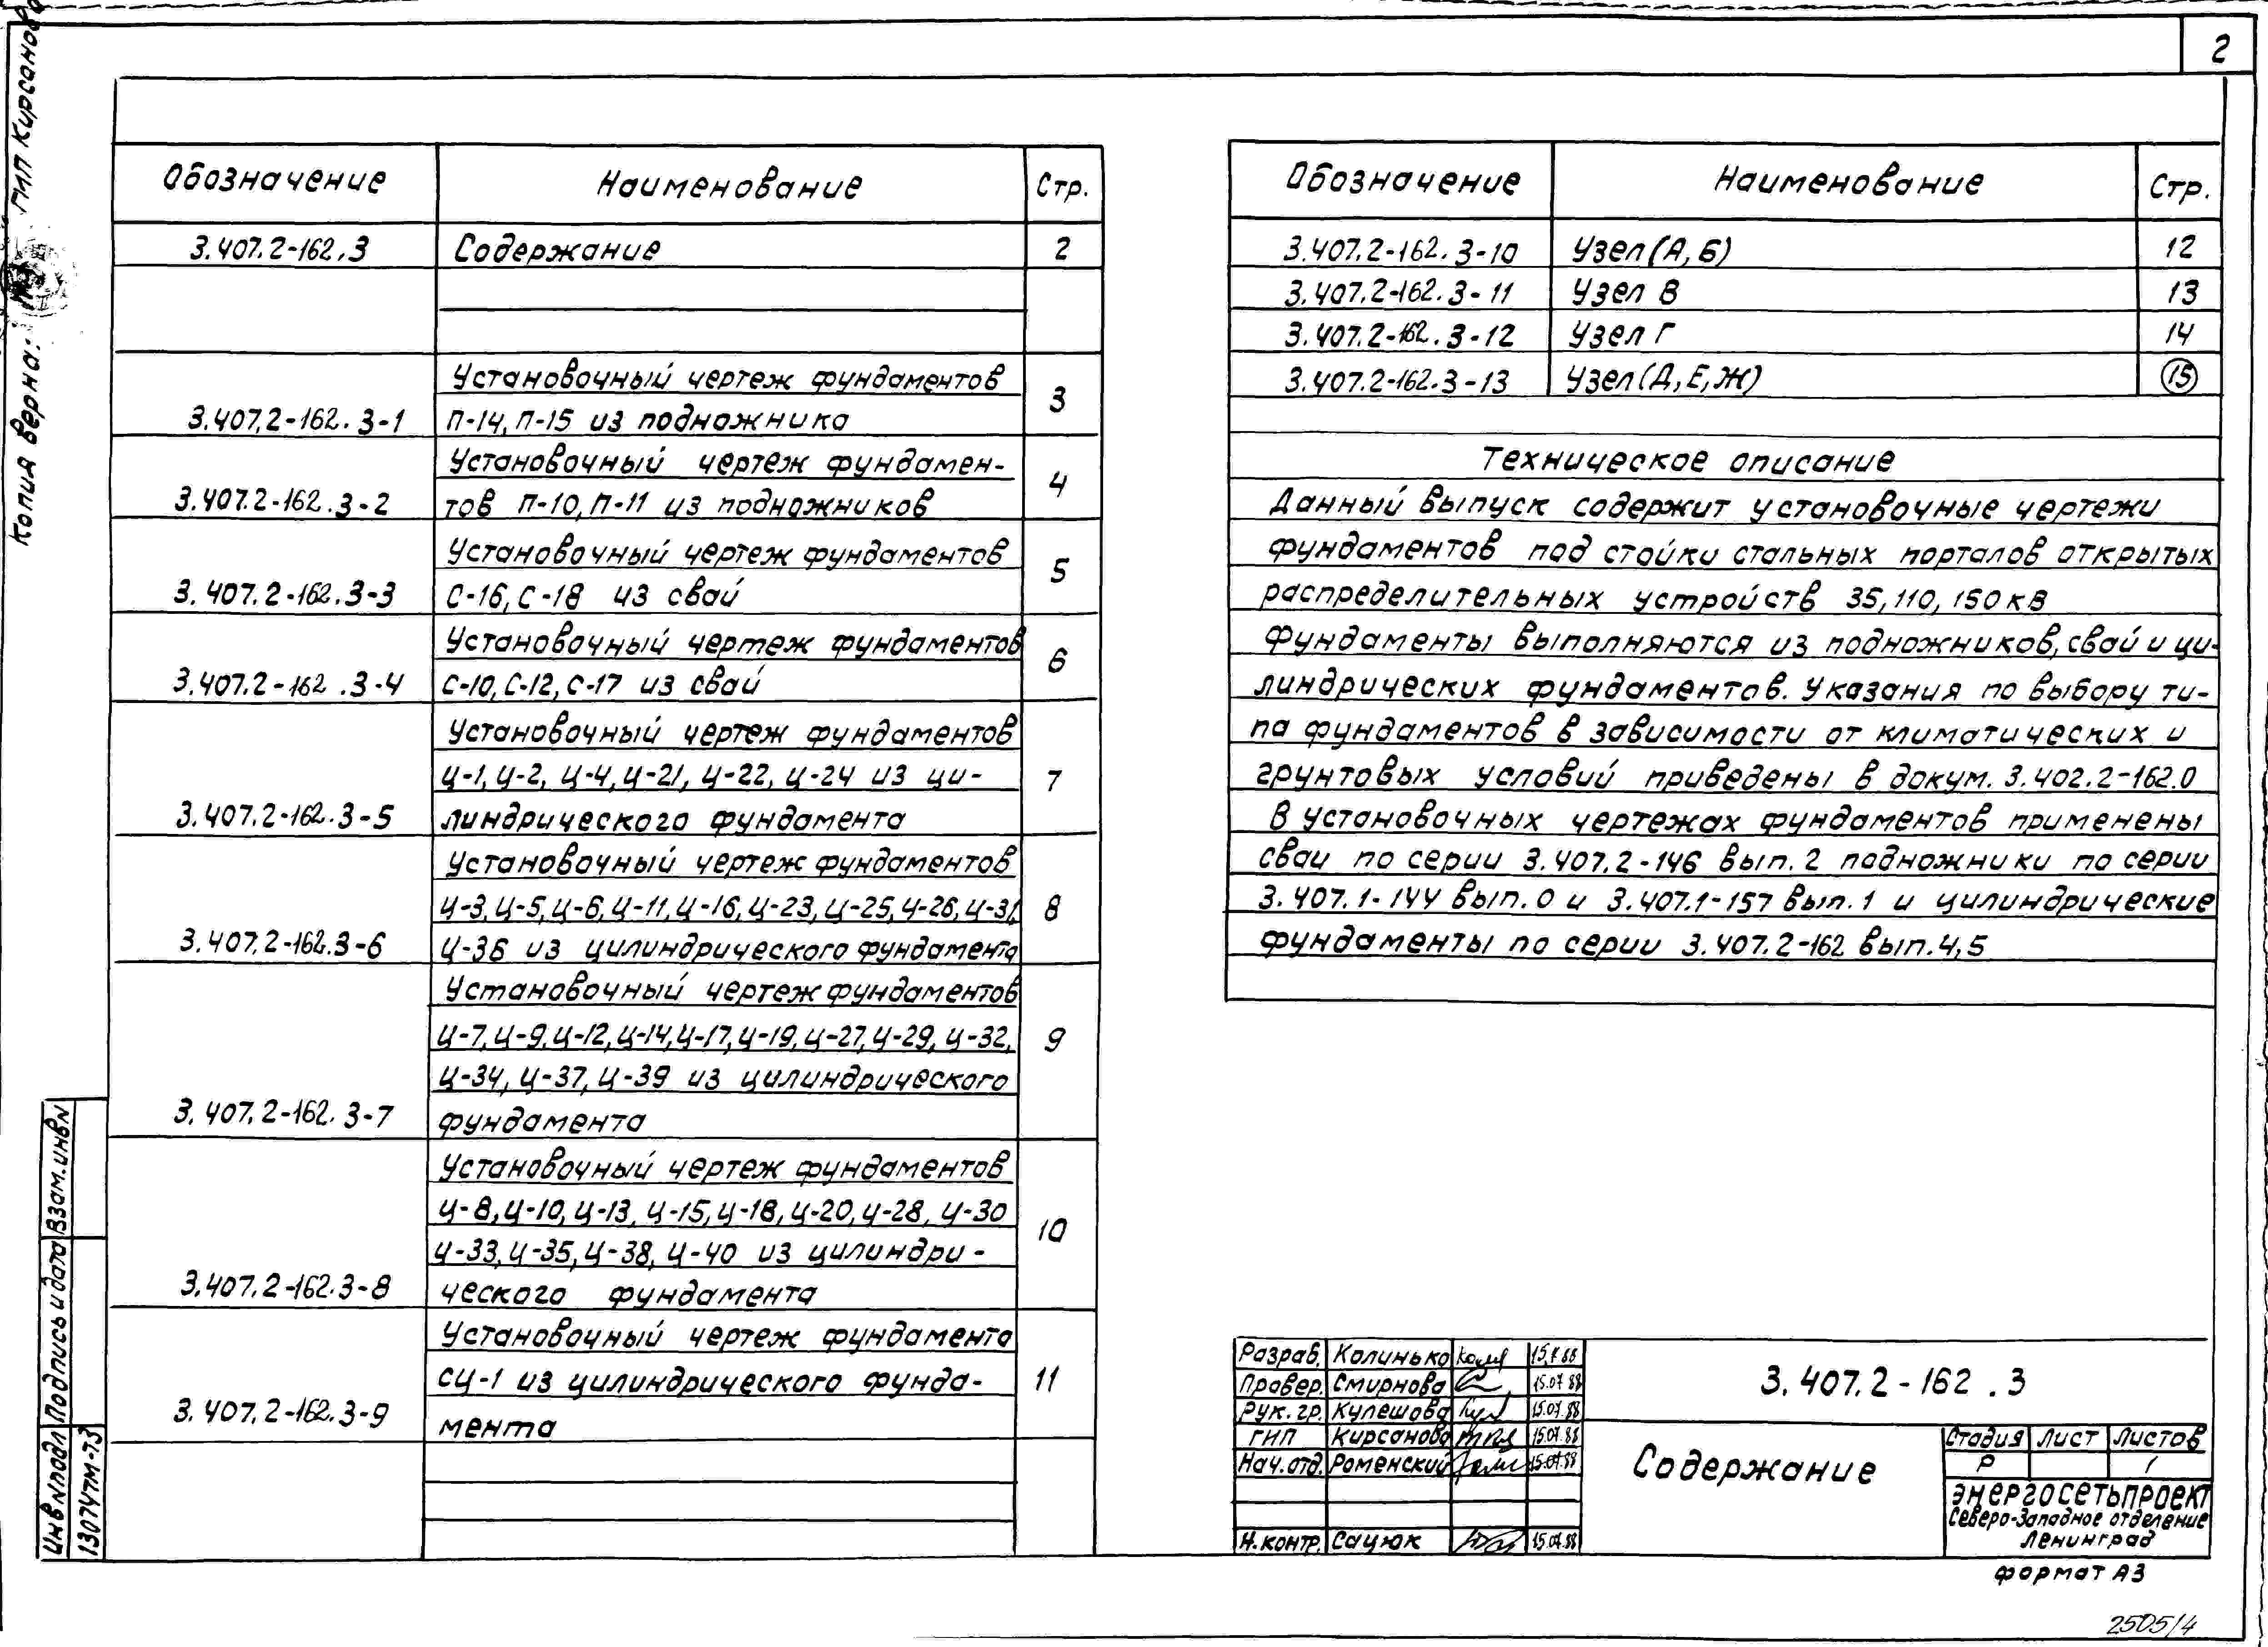 2
Копия верна: ГИП Кирсанова
Обозначение Наименование Стр.
3.407.2-162.3 Содержание 2
Установочный чертеж фундаментов
3.407.2-162.3-1 П-14, П-15 из подножника 3
Установочный чертеж фундамен-
3.407.2-162.3-2 тов П-10, П-11 из подножников 4
Установочный чертеж фундаментов
3.407.2-162.3-3 С-16, С-18 из свай 5
Установочный чертеж фундаментов
3.407.2-162.3-4 С-10, С-12, С-17 из свай 6
Установочный чертеж фундаментов
Ц-1, Ц-2, Ц-4, Ц-21, Ц-22, Ц-24 из ци- 7
3.407.2-162.3-5 линдрического фундамента
Установочный чертеж фундаментов
Ц-3, Ц-5, Ц-6, Ц-11, Ц-16, Ц-23, Ц-25, Ц-26, Ц-31, 8
3.407.2-162.3-6 Ц-36 из цилиндрического фундамента
Установочный чертеж фундаментов
Ц-7, Ц-9, Ц-12, Ц-14, Ц-17, Ц-19, Ц-27, Ц-29, Ц-32, 9
Ц-34, Ц-37, Ц-39 из цилиндрического
3.407.2-162.3-7 фундамента
Установочный чертеж фундаментов
Ц-8, Ц-10, Ц-13, Ц-15, Ц-18, Ц-20, Ц-28, Ц-30 10
Ц-33, Ц-35, Ц-38, Ц-40 из цилиндри-
3.407.2-162.3-8 ческого фундамента
Установочный чертеж фундамента
СЦ-1 из цилиндрического фунда- 11
3.407.2-162.3-9 мента
Обозначение Наименование Стр.
3.407.2-162.3-10 Узел (А, Б) 12
3.407.2-162.3-11 Узел В 13
3.407.2-162.3-12 Узел Г 14
3.407.2-162.3-13 Узел (Д, Е, Ж) 15
Техническое описание
Данный выпуск содержит установочные чертежи
фундаментов под стойки стальных порталов открытых
распределительных устройств 35, 110, 150 кВ
Фундаменты выполняются из подножников, свай и ци-
линдрических фундаментов. Указания по выбору ти-
па фундаментов в зависимости от климатических и
грунтовых условий приведены в докум. 3.402.2-162.0
В установочных чертежах фундаментов применены
сваи по серии 3.407.2-146 вып. 2 подножники по серии
3.407.1-144 вып. 0 и 3.407.1-157 вып. 1 и цилиндрические
фундаменты по серии 3.407.2-162 вып. 4, 5
Взам. инв N
Подпись и дата
Инв N подл 13074тм-т3
Разраб. Колинько
Провер. Смирнова 15.07.88
Рук. гр. Кулешова 15.07.88
ГИП Кирсанова 15.07.88
Нач. отд. Роменский 15.07.88
Н. контр. Сацюк 15.07.88
3.407.2-162.3
Содержание
Стадия Лист Листов
Р 1
ЭНЕРГОСЕТЬПРОЕКТ
Северо-Западное отделение
Ленинград
Формат А3
2505/4